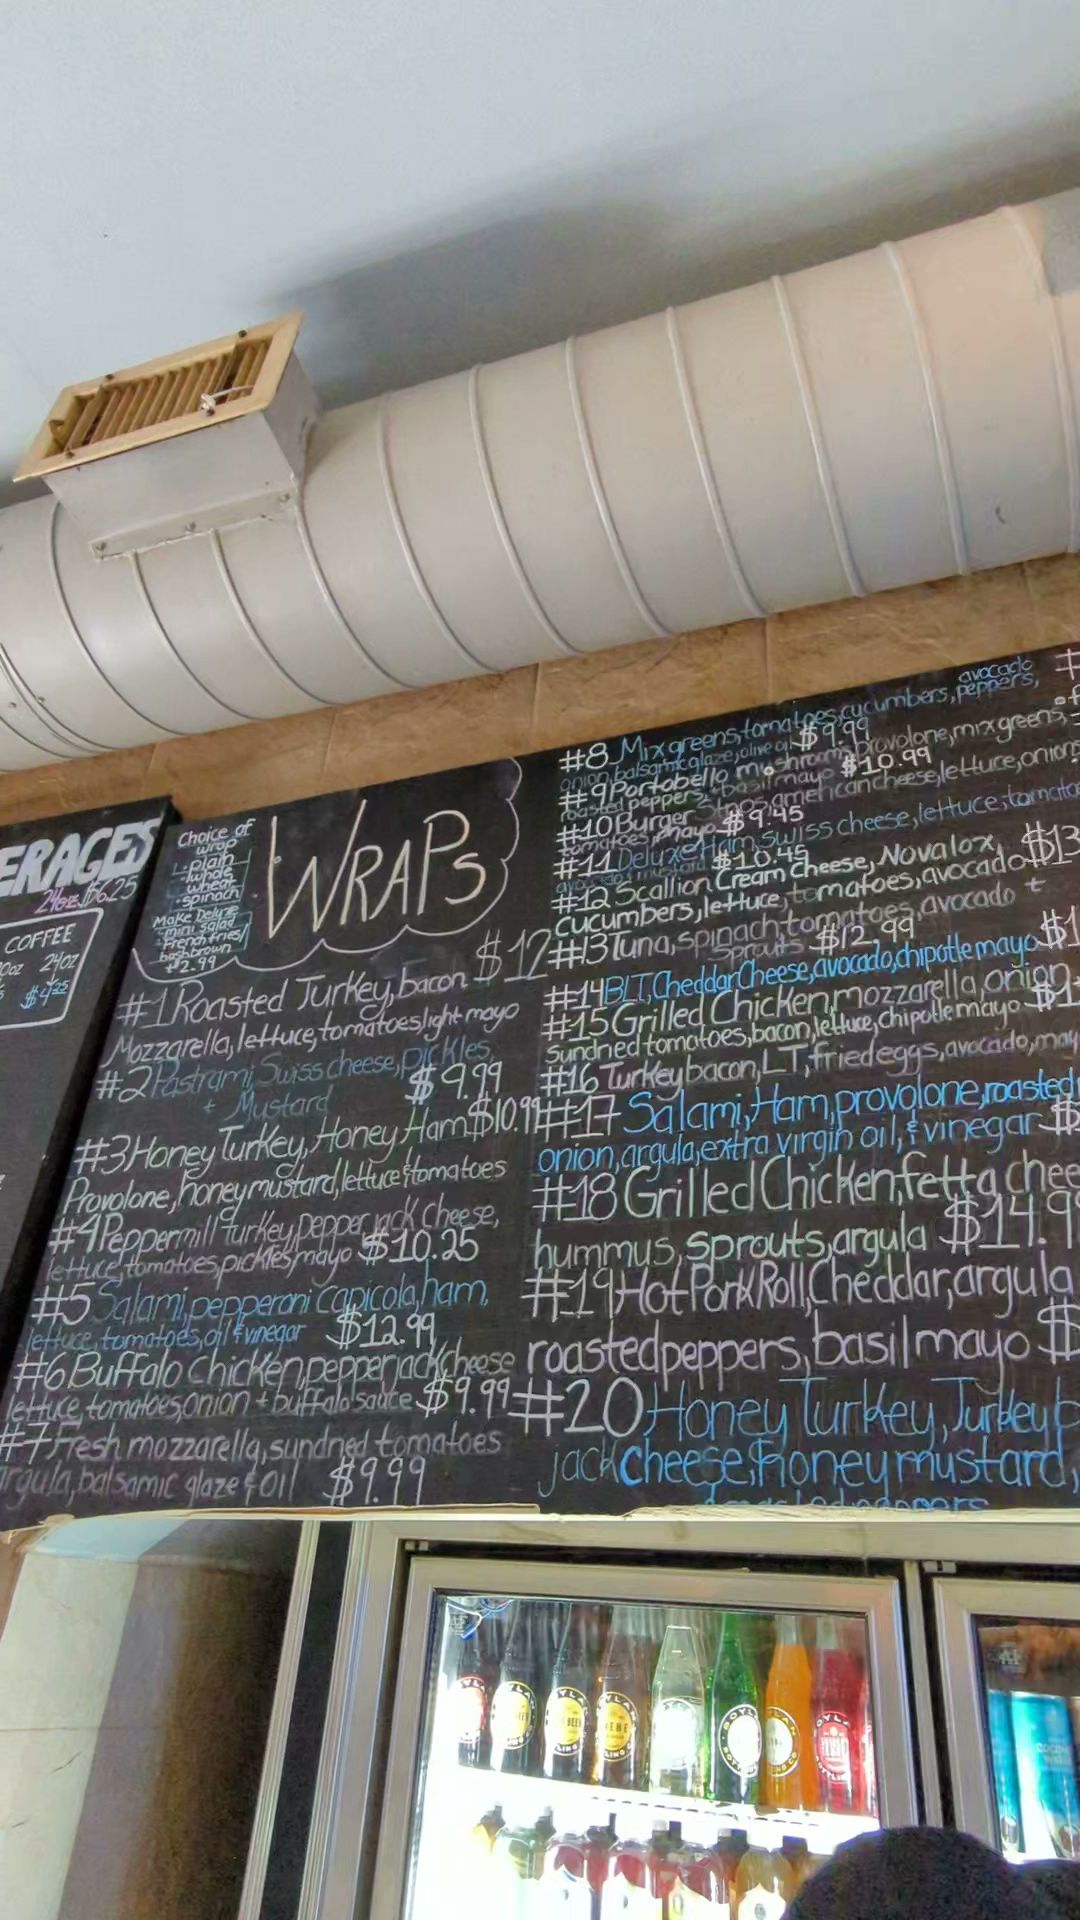 ERAGES
24oz $6.25
COFFEE
24oz
$4.25
Choice of
wrap
plain
whole
wheat
spinach
Make Deluxe
mini salad
French fries/
hashbrown
$2.99
WRAPS
#1 Roasted Turkey, bacon $12
Mozzarella, lettuce, tomatoes, light mayo
#2 Pastrami, Swiss cheese, pickles,
+ Mustard $9.99
#3 Honey Turkey, Honey Ham $10.99
Provolone, honey mustard, lettuce & tomatoes
#4 Peppermill turkey, pepper jack cheese,
lettuce, tomatoes, pickles, mayo $10.25
#5 Salami, pepperoni, capicola, ham,
lettuce, tomatoes, oil & vinegar $12.99
#6 Buffalo chicken, pepperjack cheese
lettuce, tomatoes, onion + buffalo sauce $9.99
#7 Fresh mozzarella, sundried tomatoes
argula, balsamic glaze & oil $9.99
#8 Mix greens, tomatoes, cucumbers, peppers, avocado
onion, balsamic glaze, olive oil $9.99
#9 Portobello mushroom, provolone, mix greens,
roasted peppers, basil mayo $10.99
#10 Burger Strips, american cheese, lettuce, onions
tomatoes, mayo $9.45
#11 Deluxe Ham, swiss cheese, lettuce, tomatoe
$10.45
#12 Scallion Cream Cheese, Nova lox, $13
cucumbers, lettuce, tomatoes, avocado
#13 Tuna, spinach, tomatoes, avocado +
Sprouts $12.99
#14 BLT, Cheddar Cheese, avocado, chipotle mayo $1
#15 Grilled Chicken, mozzarella, onion
sundried tomatoes, bacon, lettuce, chipotle mayo $1
#16 Turkey bacon, LT, fried eggs, avocado, may
#17 Salami, Ham, provolone, roasted
onion, argula, extra virgin oil, & vinegar $
#18 Grilled Chicken, fetta chee
hummus, sprouts, argula $14.9
#19 Hot Pork Roll, Cheddar, argula
roasted peppers, basil mayo $
#20 Honey Turkey, Turkey b
jack cheese, Honey mustard,